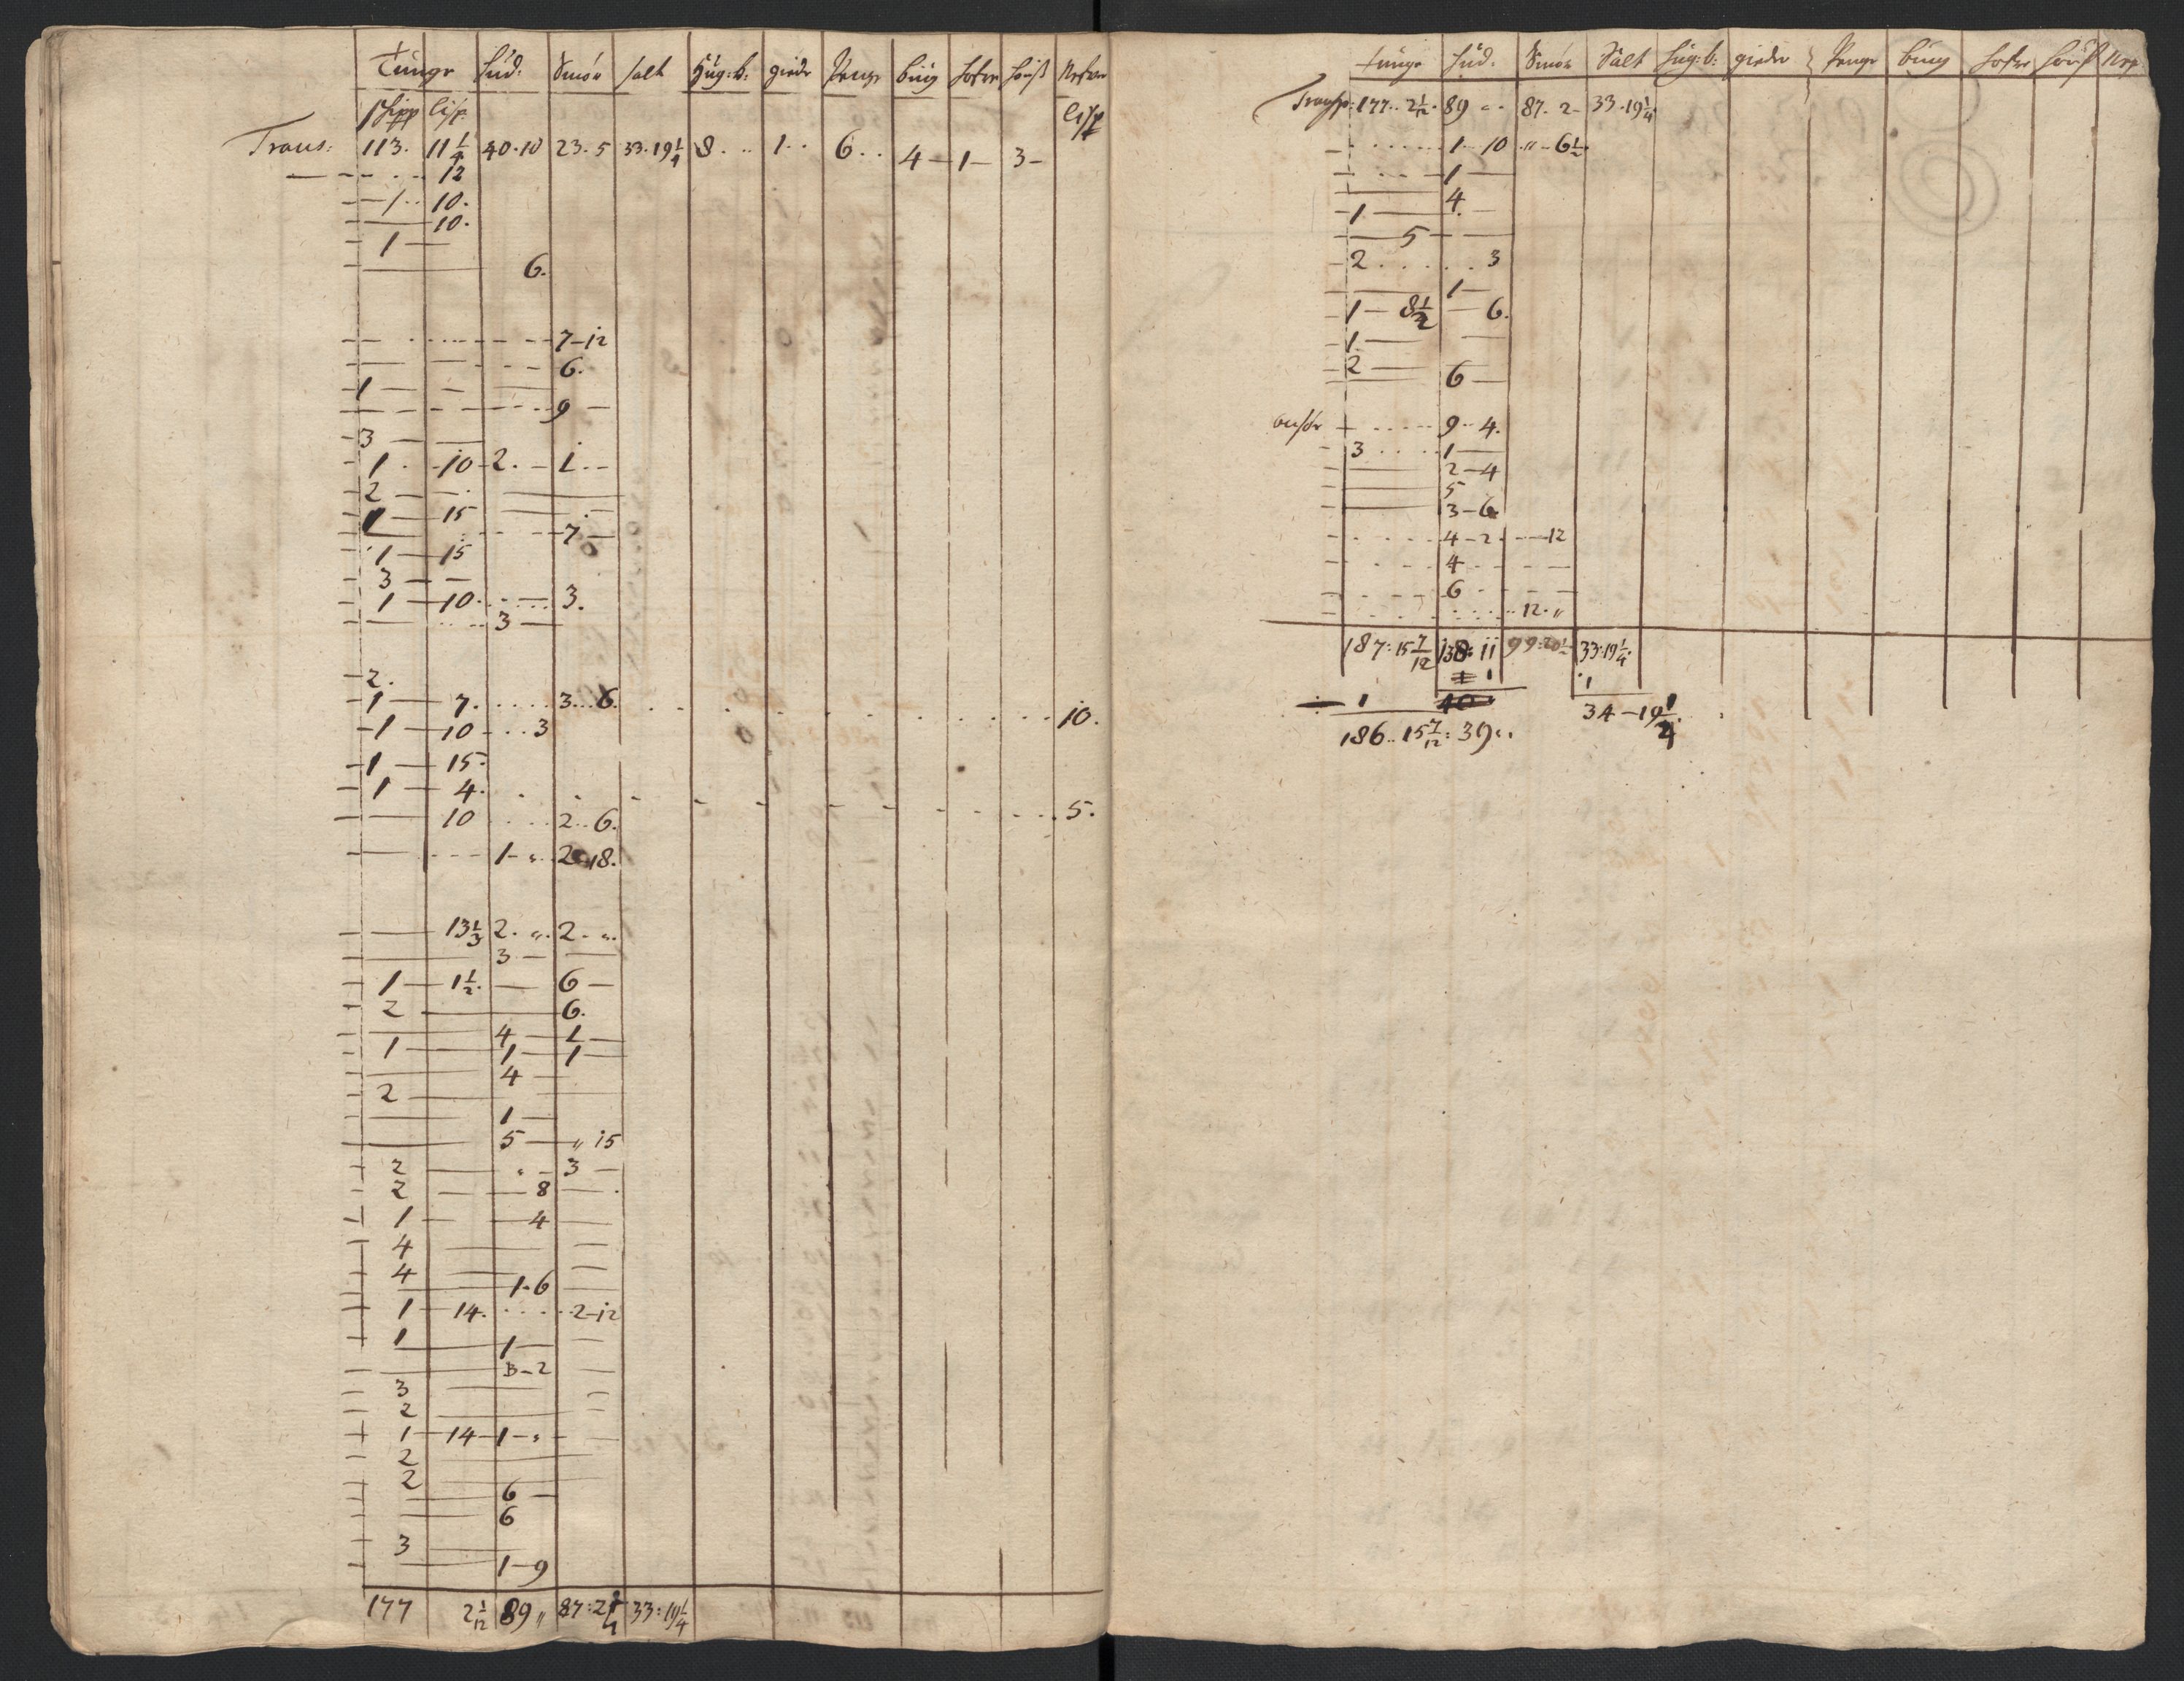 Tunge hud: Smór salt Hug: b: giedr Penge bug hofer houß Nefver
skipp lisp. lisp
Trans: 113. 11 1/4 40.10 23.5 33.19 1/4 8 .. 1.. 6.. 4 — 1 — 3 —
12
1 .. 10.
10.
1 —
6.
7 — 12
6.
1 — —
9 —
3 — —
1 . 10 2. — 1. —
2 — —
1 — 15
7 —
1 — 15
3 — —
1 — 10. 3.
3 —
2.
1 — 7. 3...6. 10.
1 10 3
1 — 15.
1 — 4. 5.
10 2..6.
1 — „ 2 18.
13 1/3 2. „ 2. „
3 —
1 — 1 1/2. — 6 —
2 — 6.
4 — 1 —
1 — 1 — 1 —
4 —
2 —
1 —
5 — „ 15
2 — „ — 3 —
2 — — 8 — .
1 — — 4 —
4 — —
4 — —
1-6
1 — 14. 2-12
1 — 1 —
B-2 —
3 — —
2 — —
1 — 14 — 1 — „ —
2 —
2 —
6 —
6
3 —
1 — 9
177 2 1/12 89 „ 87:2 33:19 1/4
tunge hud. Smór Salt hug: b: giedr Penge bug hofer houß Nep
Transp: 177.. 2 1/12. 89 „ . 87. 2 — 33.19 1/4.
1 — 10 „ — 6 1/2.
1 —
4
1 — —
5 —
2 . . . . . 3
1 —
1 — 8 1/2 — 6.
1. — —
2 —
6 —
9 . 4.
3 . . . . 1 —
2 — 4
5
3 — 6
4 — 2 . — 12
4 — — —
6 — —
12. „
187: 15 7/12 138: 11 99: 33:19 1/4.
1 1
÷ 1 40 34 — 19 1/4.
186.. 15 7/12: 39 „